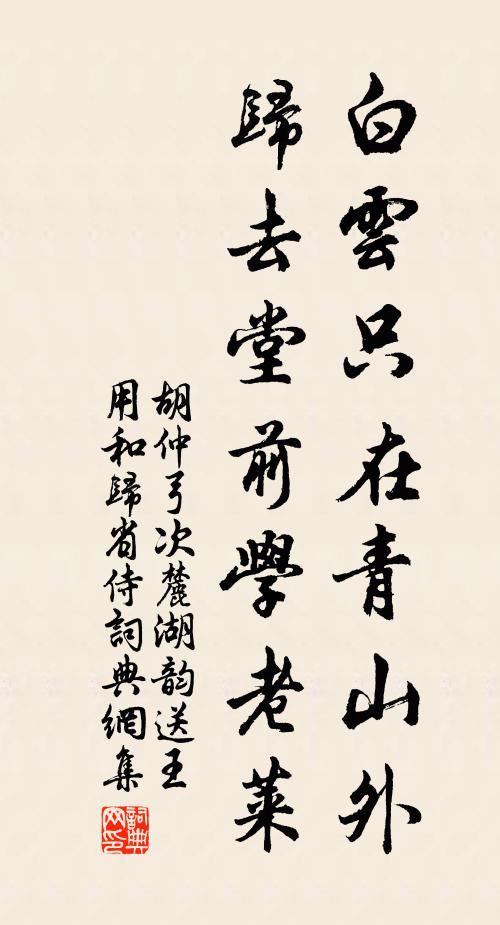 白雲只在青山外
歸去堂前學老萊
胡仲弓次麓湖韵送王
用和歸省侍詞典網集
詞典
网印